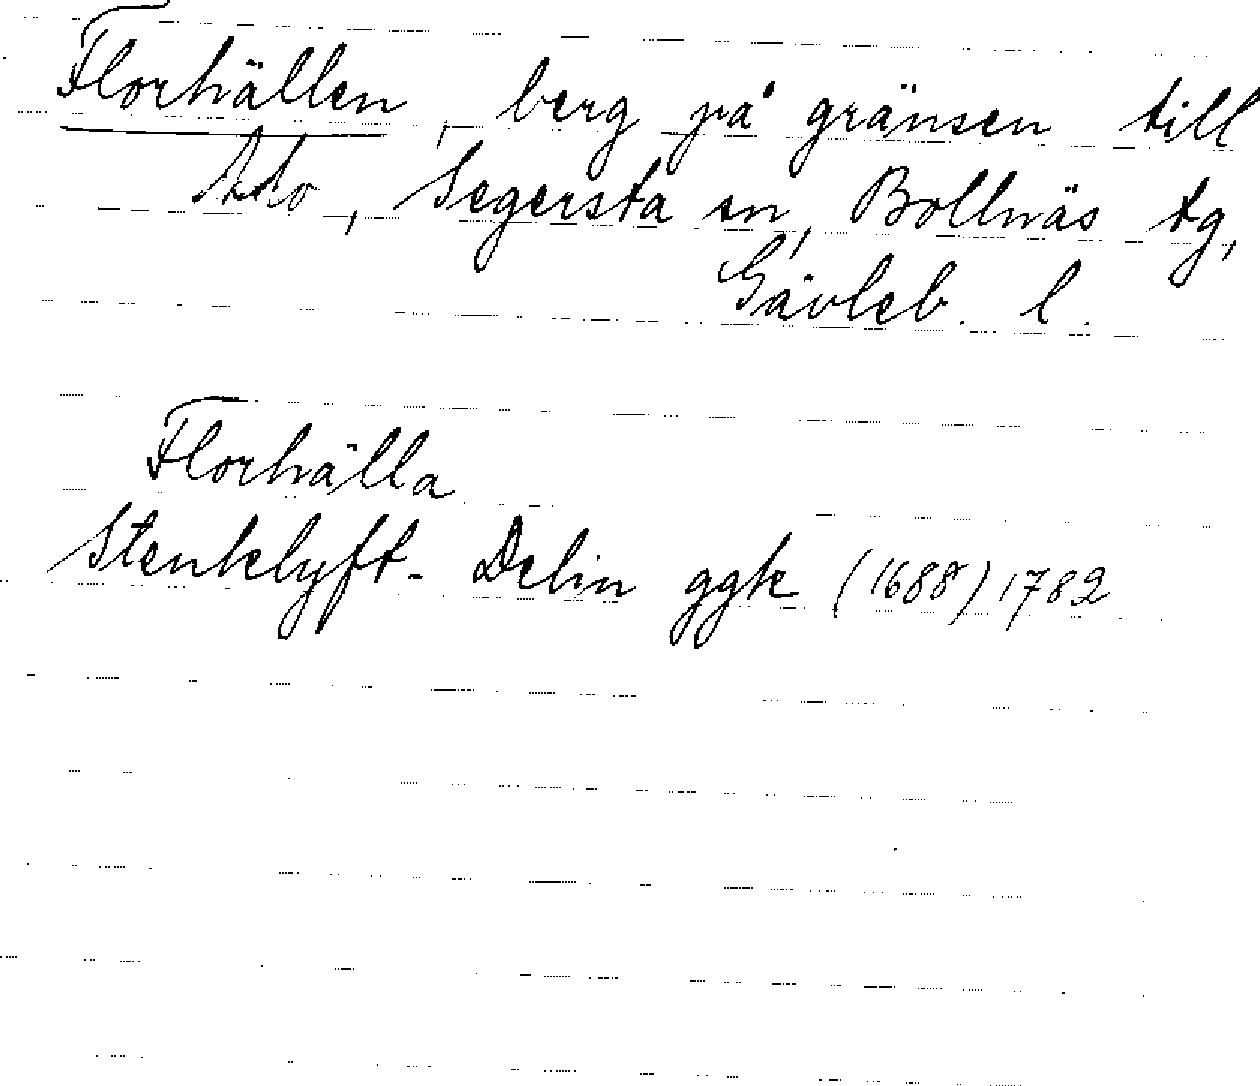 Florhällen, berg på gränsen till
Arbo, Segersta en, Bollnäs tg,
Gävleb. l.
Florhälla
Stenklyft- Delin ggk (1688) 1782